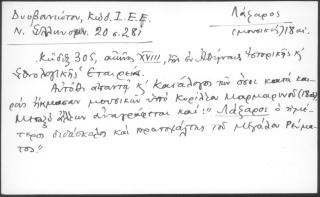 Δυοβουνιώτου, Κώδ. Ι.Ε.Ε.
Λάζαρος
Ν. Ἑλληνομν. 20 σ. 281
(μουσικός) 18 αἰ.
Κῶδιξ 305, αἰῶνος XVIII, τῆς ἐν Ἀθήναις Ἱστορικῆς κ'
Ἐθνολογικῆς Ἑταιρείας.
Αὐτόθι ἀπαντᾷ κ' Κατάλογος τῶν ὅσοι κατὰ και-
ροὺς ἤκμασαν μουσικῶν ὑπὸ Κυρίλλου Μαρμαρηνοῦ (18 αἰ.)
Μεταξὺ ἄλλων ἀναγράφεται καί: "Λάζαρος ὁ ἡμέ-
τερος διδάσκαλος καὶ πρωτοψάλτης τοῦ Μεγάλου Ρεύμα-
τος".